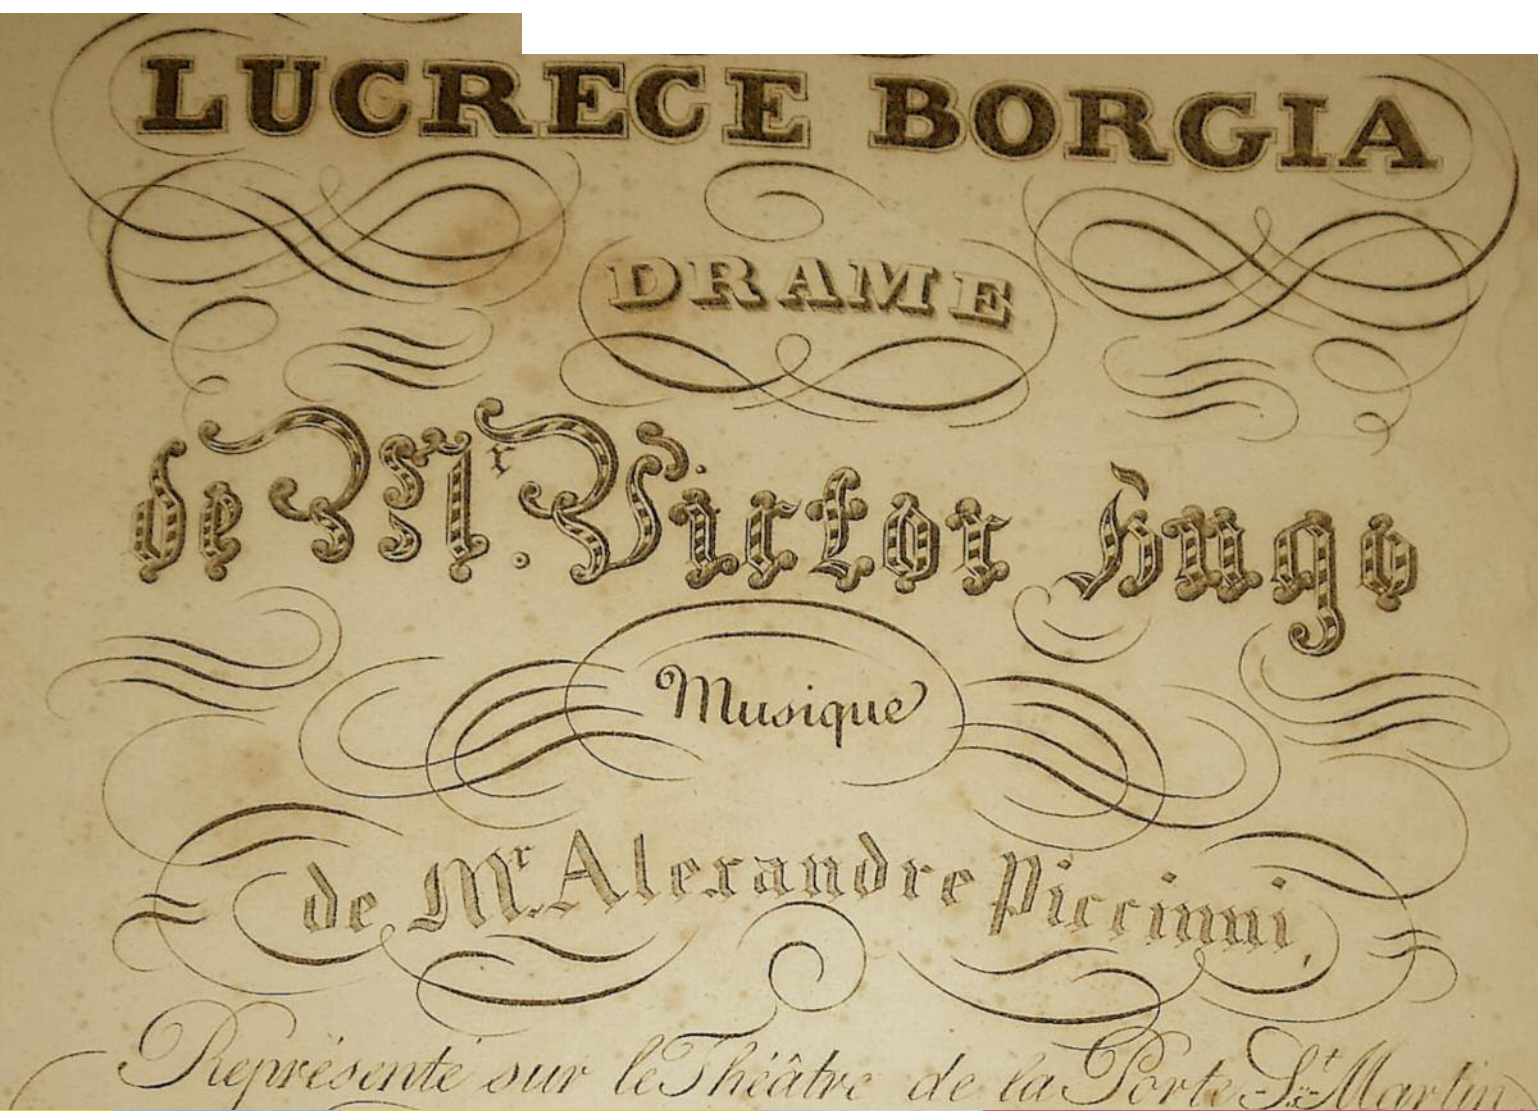 LUCRECE BORGIA
DRAME
de Mr. Victor Hugo
Musique
de Mr. Alexandre Piccinni,
Représenté sur le Théâtre de la Porte St. Martin